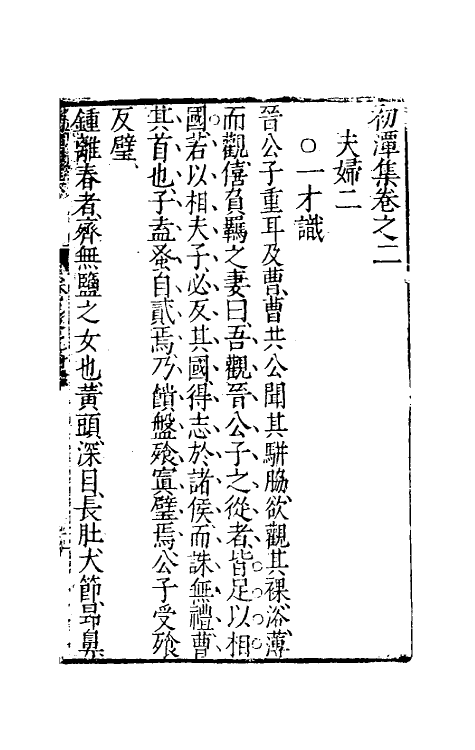 初潭集卷之二
夫婦二
○一才識
晉公子重耳及曹曹共公聞其駢脇欲觀其裸浴薄
而觀僖負羈之妻曰吾觀晉公子之從者皆足以相
國若以相夫子必反其國得志於諸侯而誅無禮曹
其首也子盍蚤自貳焉乃饋盤飱寘璧焉公子受飱
反璧
鍾離春者齊無鹽之女也黃頭深目長肚大節昻鼻